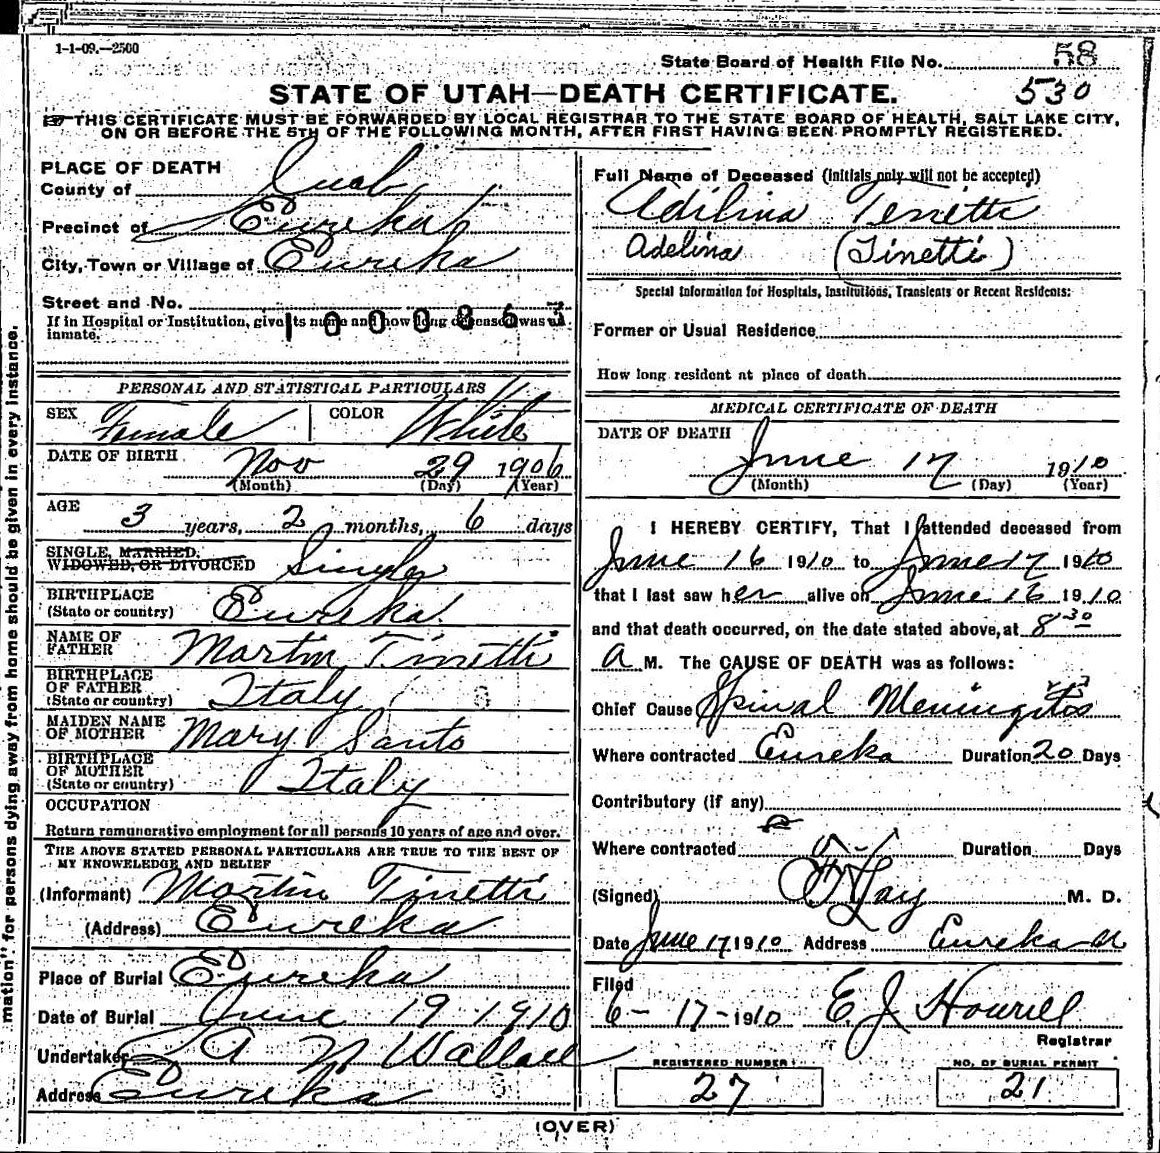 1-1-09.—2500
State Board of Health File No. 58
STATE OF UTAH—DEATH CERTIFICATE. 530
THIS CERTIFICATE MUST BE FORWARDED BY LOCAL REGISTRAR TO THE STATE BOARD OF HEALTH, SALT LAKE CITY,
ON OR BEFORE THE 5TH OF THE FOLLOWING MONTH, AFTER FIRST HAVING BEEN PROMPTLY REGISTERED.
PLACE OF DEATH
County of Juab
Precinct of Eureka
City, Town or Village of Eureka
Street and No.
If in Hospital or Institution, give its name and how long deceased was an
inmate.
PERSONAL AND STATISTICAL PARTICULARS
SEX Female COLOR White
DATE OF BIRTH Nov 29 1906
(Month) (Day) (Year)
AGE 3 years, 2 months, 6 days
SINGLE, MARRIED,
WIDOWED, OR DIVORCED Single
BIRTHPLACE
(State or country) Eureka
NAME OF
FATHER Martin Tinetti
BIRTHPLACE
OF FATHER
(State or country) Italy
MAIDEN NAME
OF MOTHER Mary Santo
BIRTHPLACE
OF MOTHER
(State or country) Italy
OCCUPATION
Return remunerative employment for all persons 10 years of age and over.
THE ABOVE STATED PERSONAL PARTICULARS ARE TRUE TO THE BEST OF
MY KNOWLEDGE AND BELIEF
(Informant) Martin Tinetti
(Address) Eureka
Place of Burial Eureka
Date of Burial June 19 1910
Undertaker A N Wallace
Address Eureka
Full Name of Deceased (Initials only will not be accepted)
Adilina Tenetti
Adelina (Tinetti)
Special Information for Hospitals, Institutions, Transients or Recent Residents:
Former or Usual Residence
How long resident at place of death
MEDICAL CERTIFICATE OF DEATH
DATE OF DEATH
June 17 1910
(Month) (Day) (Year)
I HEREBY CERTIFY, That I attended deceased from
June 16 1910 to June 17 1910
that I last saw her alive on June 16 1910
and that death occurred, on the date stated above, at 8 30
a M. The CAUSE OF DEATH was as follows:
Chief Cause Spinal Meningitis
Where contracted Eureka Duration 20 Days
Contributory (if any)
Where contracted Duration Days
(Signed) M. D.
Date June 17 1910 Address Eureka
Filed
6-17-1910 E. J. Howell
Registrar
REGISTERED NUMBER
27
NO. OF BURIAL PERMIT
21
(OVER)
mation" for persons dying away from home should be given in every instance.